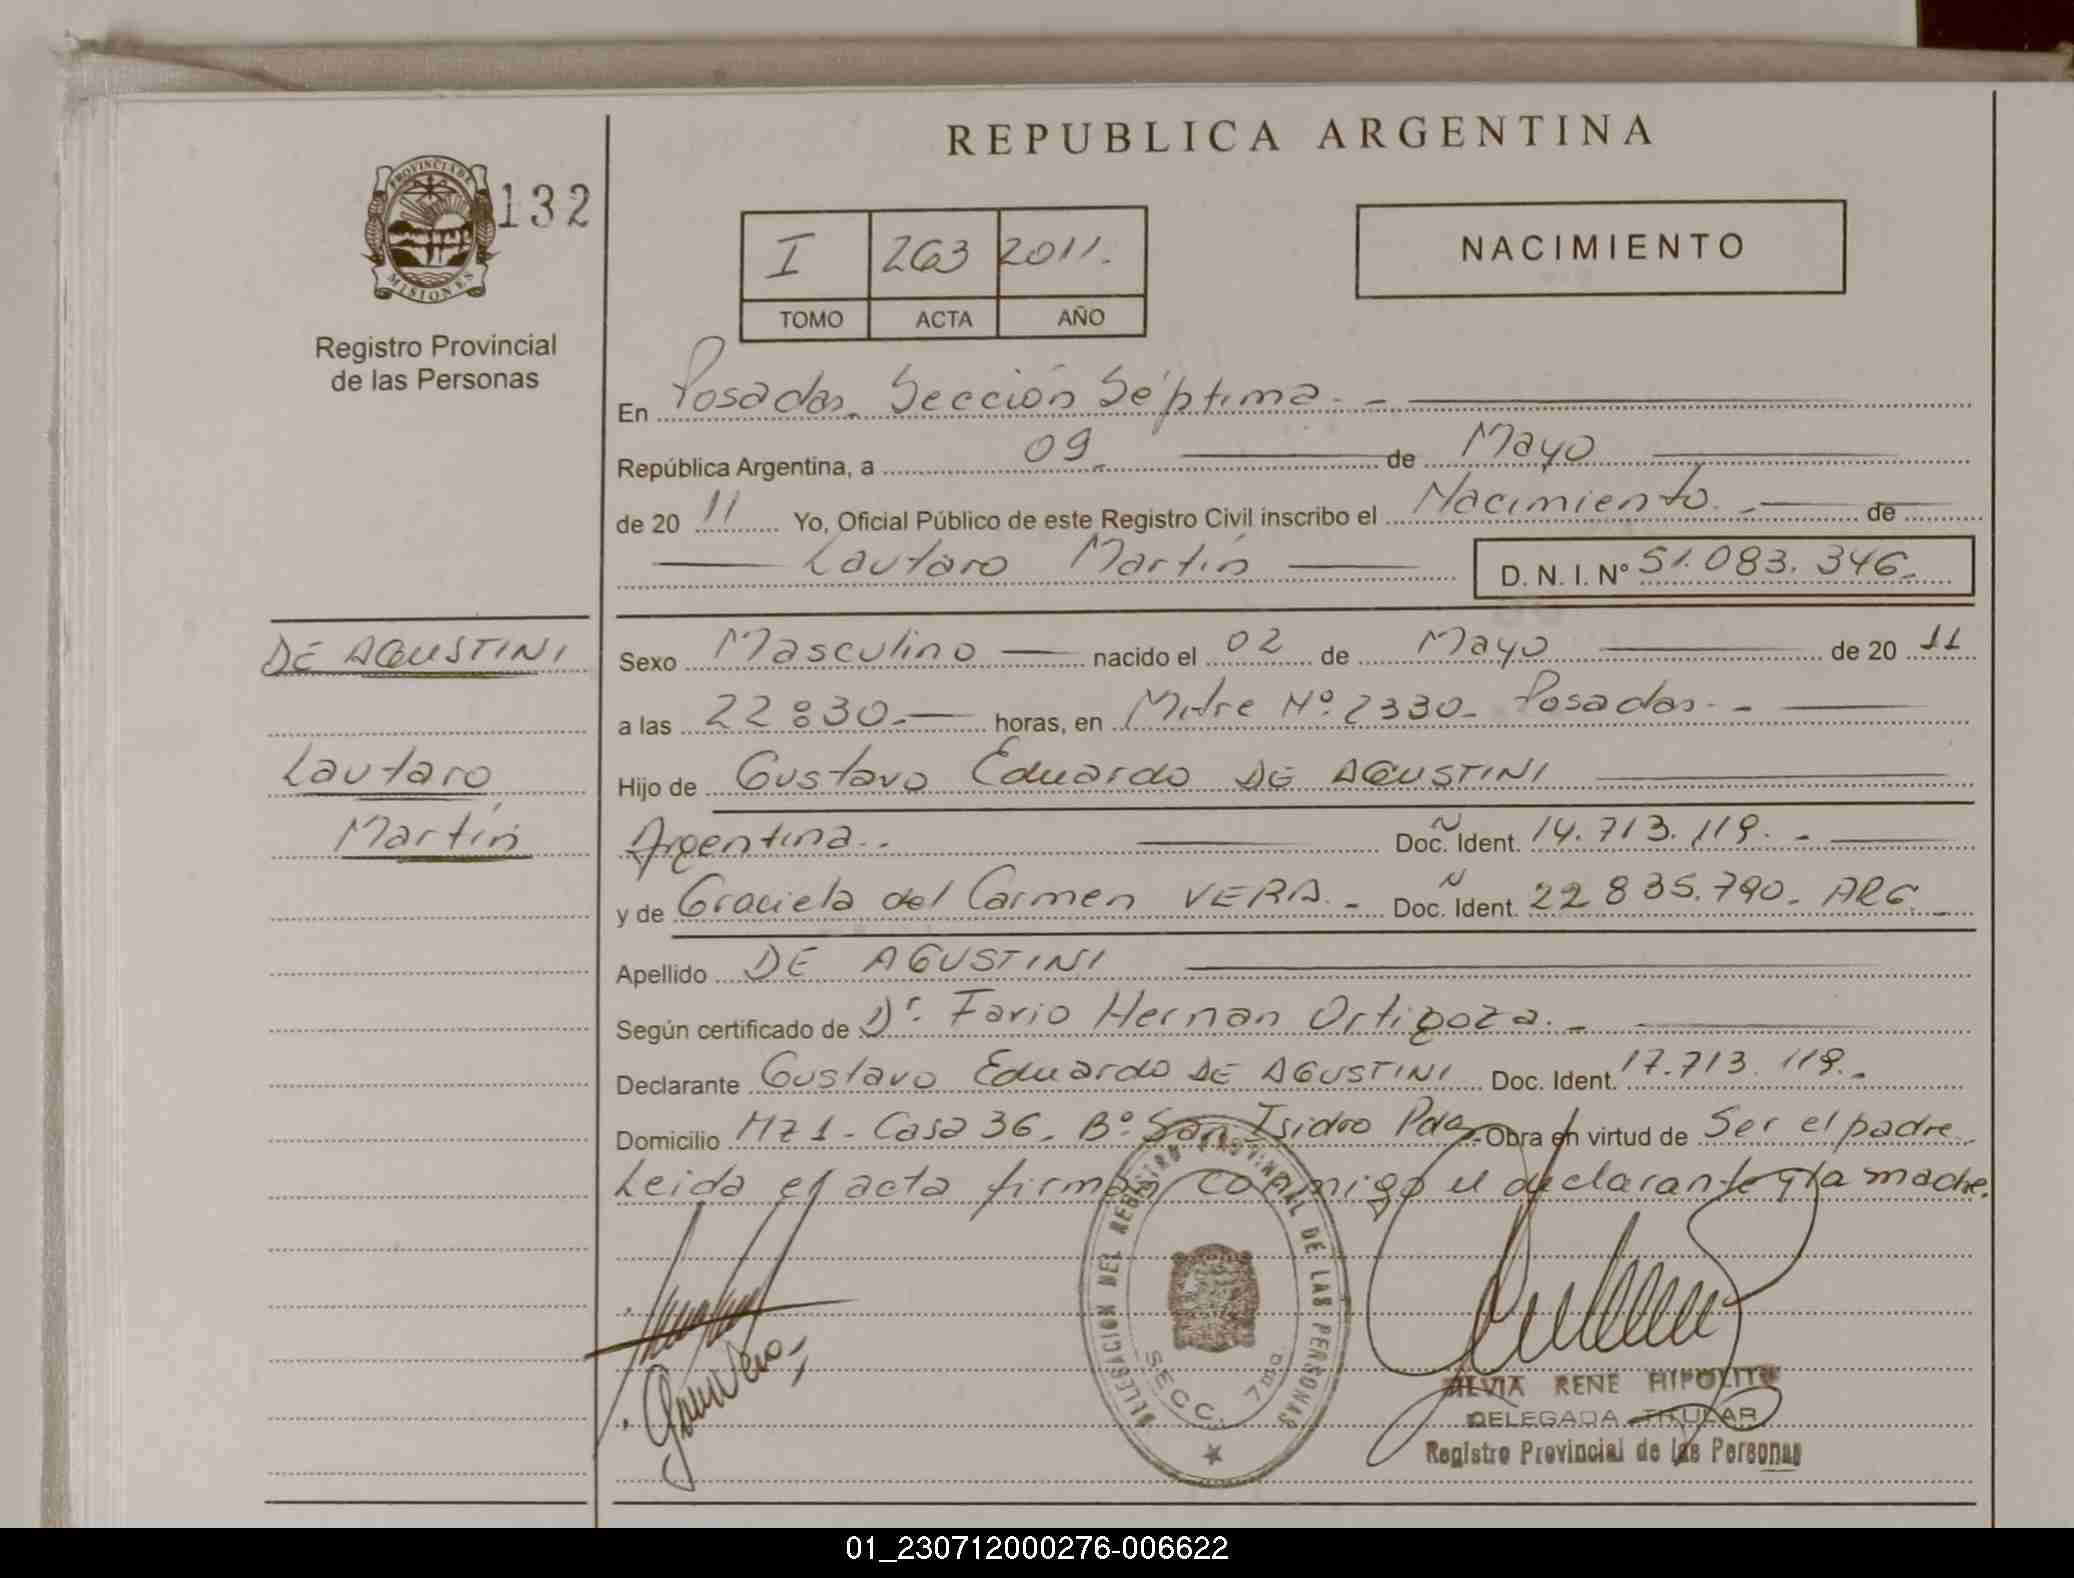 REPUBLICA ARGENTINA
PROVINCIA DE
MISIONES
132
Registro Provincial
de las Personas
I 263 2011.
TOMO ACTA AÑO
NACIMIENTO
En Posadas. Sección Séptima. -
República Argentina, a 09 de Mayo
de 20 11 Yo, Oficial Público de este Registro Civil inscribo el Nacimiento. - de
Lautaro Martín D. N. I. Nº 51.083.346.
DE AGUSTINI
Lautaro
Martín
Sexo Masculino nacido el 02 de Mayo de 20 11
a las 22:30. horas, en Mitre Nº 2330- Posadas. -
Hijo de Gustavo Eduardo DE AGUSTINI
Argentina.. Doc. Ident. 14.713.119. -
y de Graciela del Carmen VERA. - Doc. Ident. 22 835.790. ARG. -
Apellido DE AGUSTINI
Según certificado de Dr. Favio Hernan Ortigoza. -
Declarante Gustavo Eduardo DE AGUSTINI Doc. Ident. 17.713.119. -
Domicilio Mz 1 - Casa 36. Bº San Isidro Pdas - Obra en virtud de Ser el padre.
Leida el acta firman conmigo el declarante y la madre.
DELEGACION DEL REGISTRO PROVINCIAL DE LAS PERSONAS
SECC. 7ma.
SILVIA RENE HIPOLITO
DELEGADA TITULAR
Registro Provincial de las Personas
01_230712000276-006622